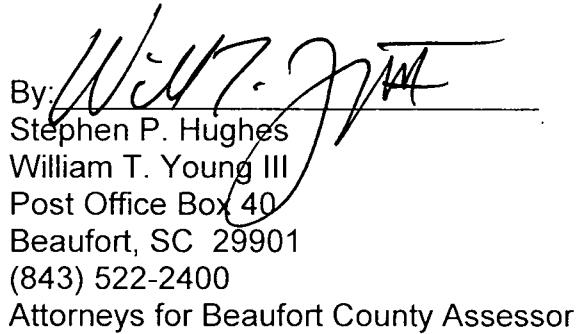 By: Will T. Y III
Stephen P. Hughes
William T. Young III
Post Office Box 40
Beaufort, SC 29901
(843) 522-2400
Attorneys for Beaufort County Assessor